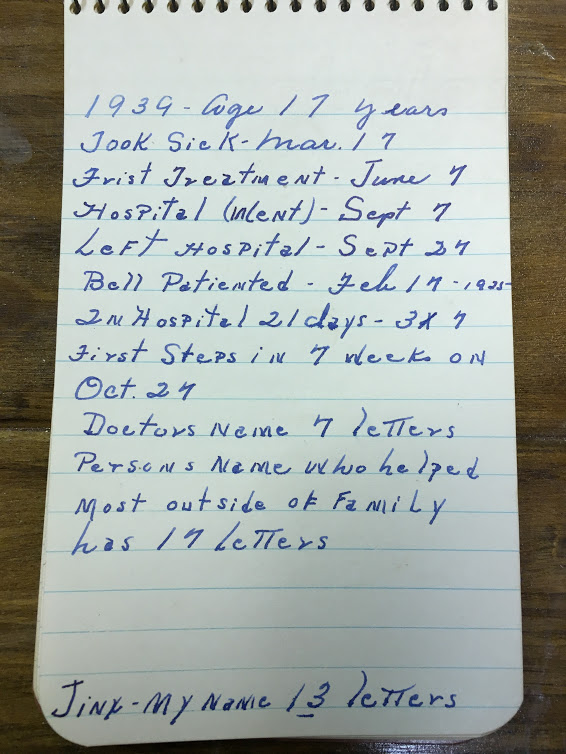 1939 - Age 17 years
Took Sick - Mar. 17
Frist Treatment - June 7
Hospital (Went) - Sept 7
Left Hospital - Sept 27
Bell Patiented - Feb 17 - 1925-
In Hospital 21 days - 3X7
First Steps in 7 Weeks on
Oct. 27
Doctors Name 7 letters
Persons Name who helped
Most outside of Family
has 17 letters
Jinx - My Name 13 letters